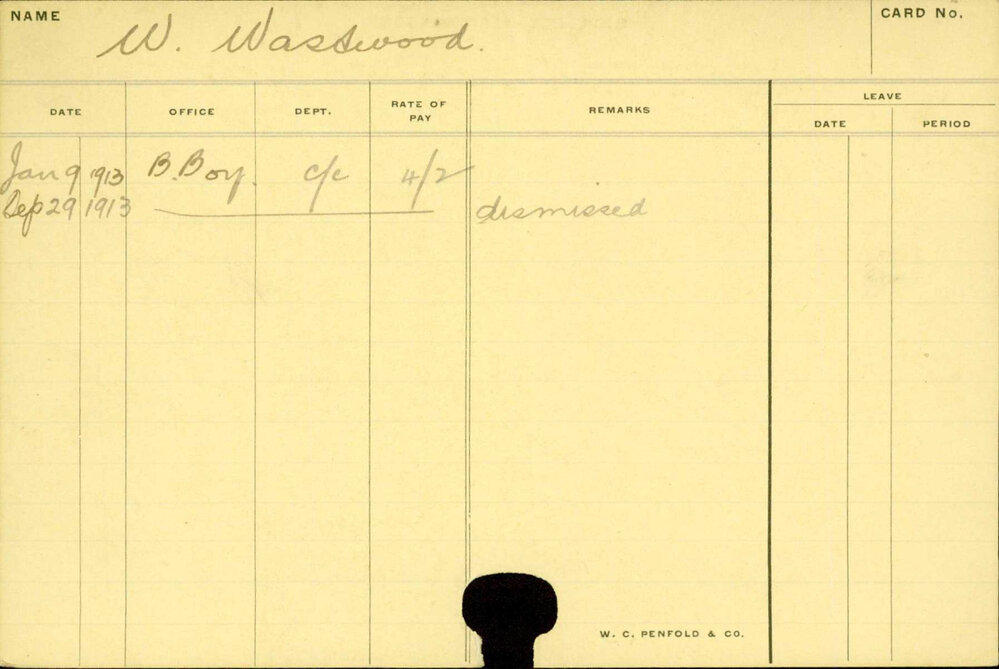 NAME
W. Wastwood.
CARD No.
DATE OFFICE DEPT. RATE OF PAY REMARKS LEAVE
DATE PERIOD
Jan 9 1913 B. Boy. c/c 4/2
Sep 29 1913 dismissed
W. C. PENFOLD & CO.